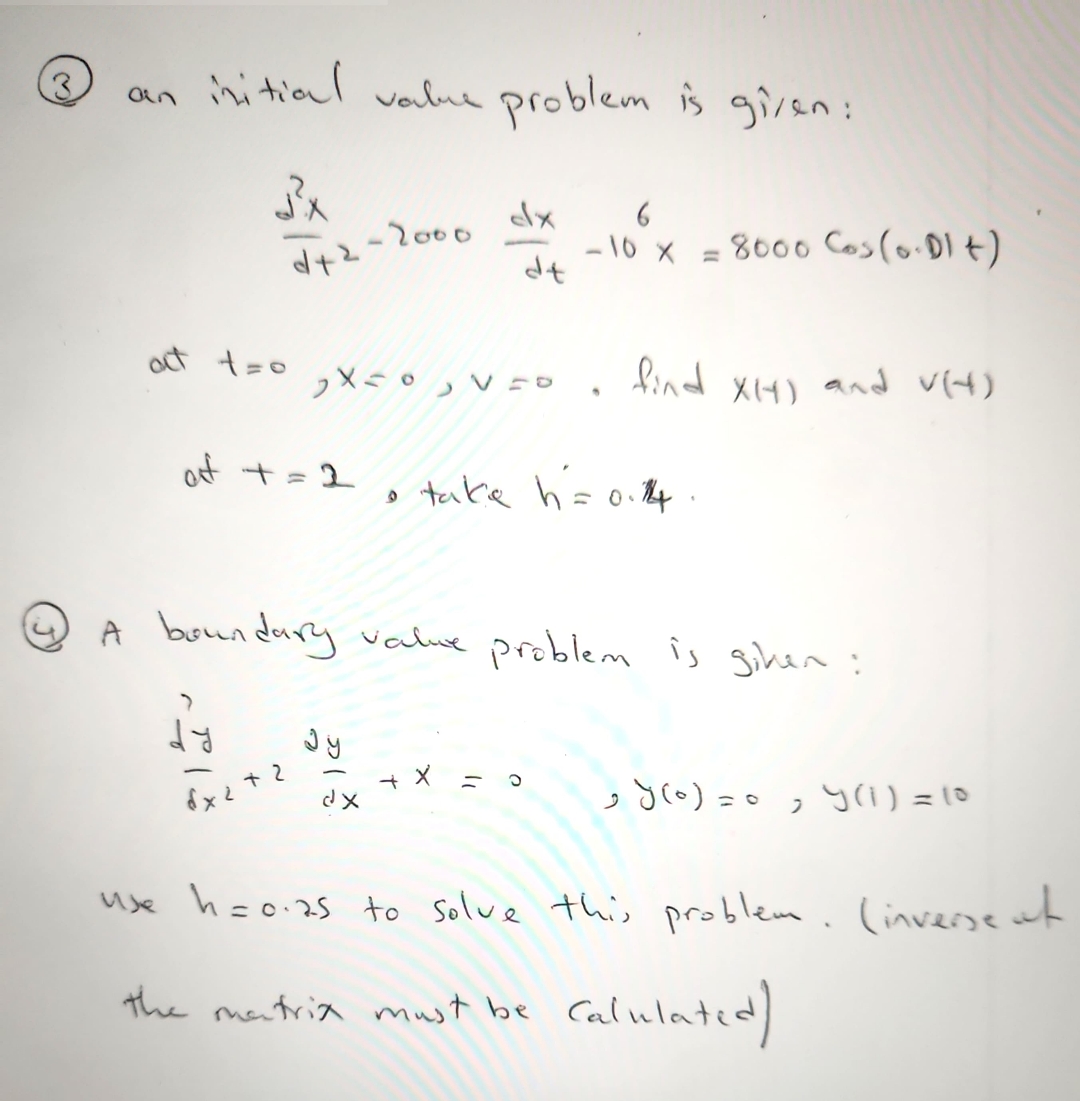 ③ an initial value problem is given:
d²x/dt² - 2000 dx/dt - 10⁶ x = 8000 Cos(0.01 t)
at t=0 , x=0 , v=0 . find x(t) and v(t)
at t = 2 , take h = 0.4 .
④ A boundary value problem is given :
d²y/dx² + 2 dy/dx + x = 0 , y(0) = 0 , y(1) = 10
use h = 0.25 to solve this problem . (inverse of
the matrix must be Calulated)